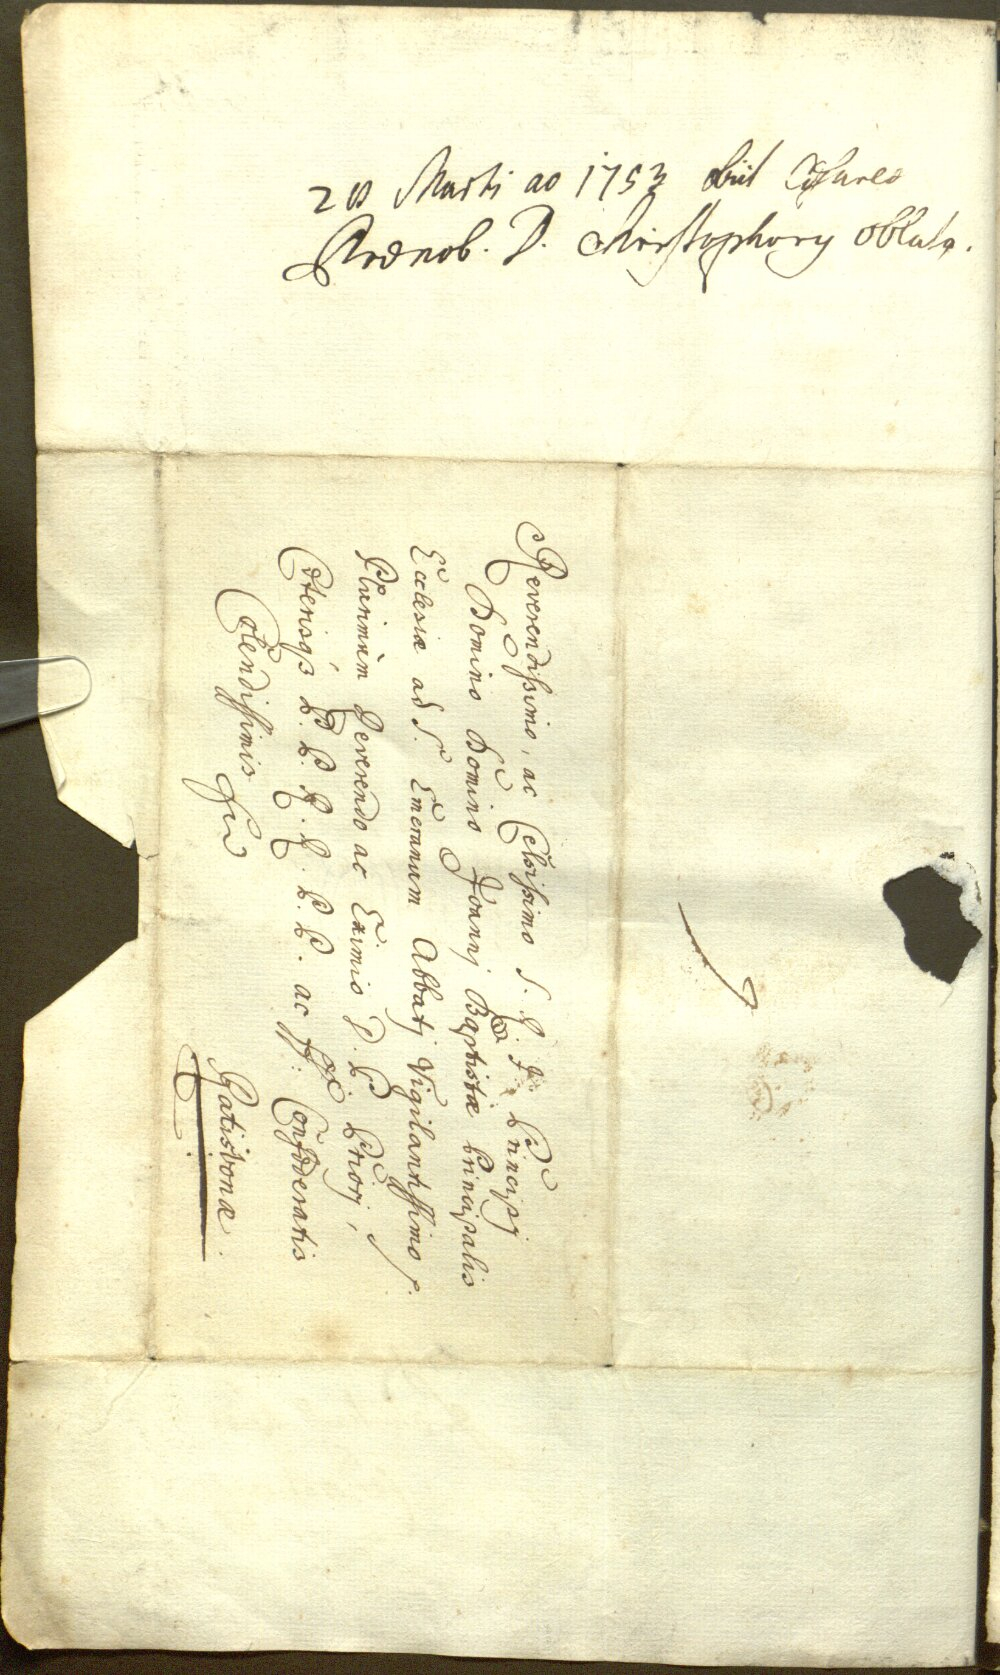 28 Marti ao 1753 obiit
Rdenob. P. Christophory oblatq.
Reverendissimo, ac Celsissimo S. R. I. Principj
Domino Domino Joannj Baptistæ Principalis
Ecclesiæ ad S. Emeranum Abbatj Vigilantissimo,
Plurimùm Reverendo ac Eximio P. P. Priorj,
Cæterisq3 P. P. R. R. P. P. ac ff: Confœderatis
Colendissimis
Ratisbonæ.